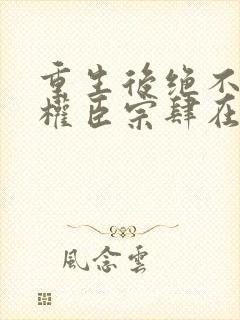 重生後绝不
權臣宗肆在
風念雲